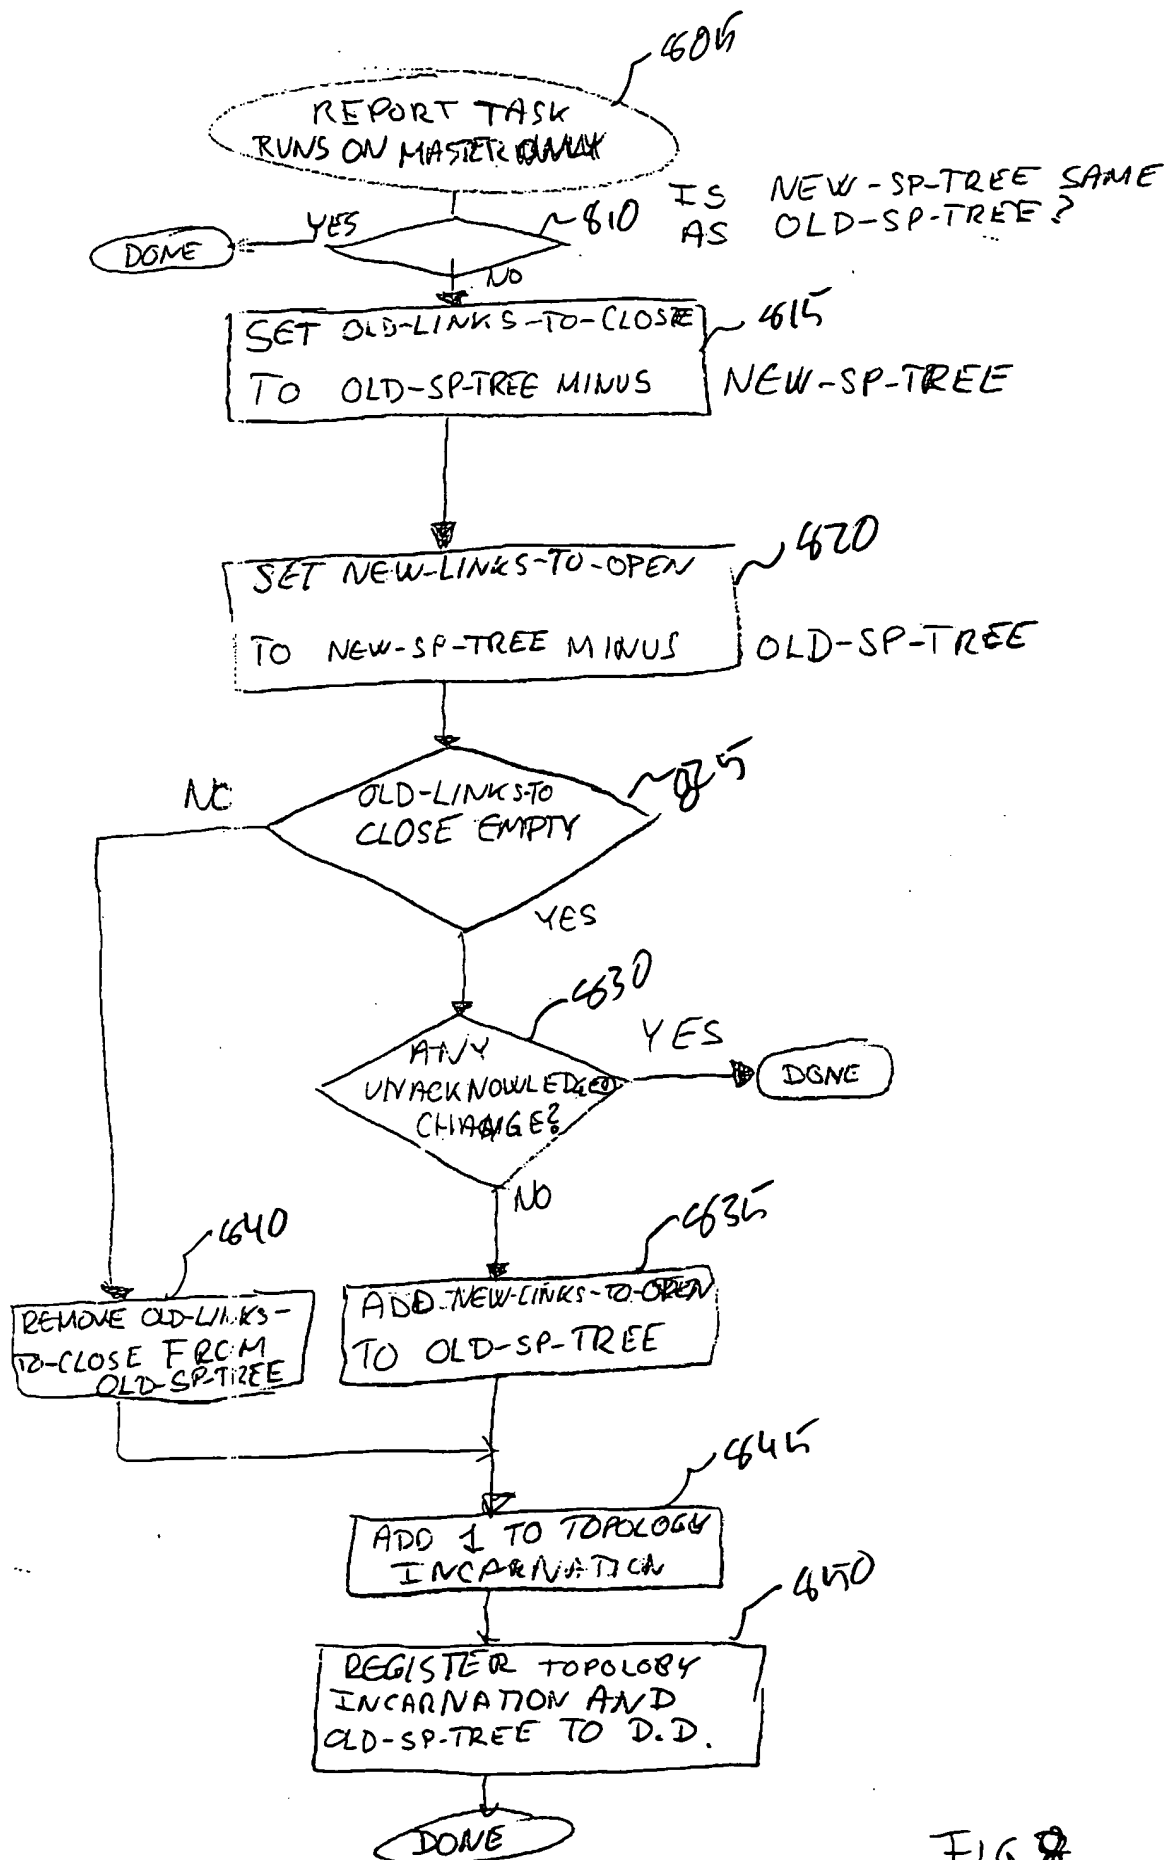 805
REPORT TASK
RUNS ON MASTER ONLY
IS NEW-SP-TREE SAME
AS OLD-SP-TREE?
810
YES
DONE
NO
SET OLD-LINKS-TO-CLOSE
815
TO OLD-SP-TREE MINUS NEW-SP-TREE
820
SET NEW-LINKS-TO-OPEN
TO NEW-SP-TREE MINUS OLD-SP-TREE
825
NO
OLD-LINKS-TO
CLOSE EMPTY
YES
830
YES
ANY
UNACKNOWLEDGED
CHANGE?
DONE
NO
835
840
ADD NEW-LINKS-TO-OPEN
TO OLD-SP-TREE
REMOVE OLD-LINKS-
TO-CLOSE FROM
OLD-SP-TREE
845
ADD 1 TO TOPOLOGY
INCARNATION
850
REGISTER TOPOLOGY
INCARNATION AND
OLD-SP-TREE TO D.D.
DONE
FIG 8